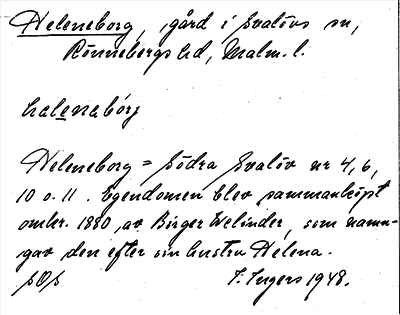 Heleneborg, gård i Svalövs sn,
Rönnebergs hd, Malm. l.
halenabórj
Heleneborg = Södra Svalöv nr 4, 6,
10 o. 11. Egendomen blev sammanköpt
omkr. 1880, av Birger Welinder, som namn-
gav den efter sin hustru Helena.
I. Ingers 1948.